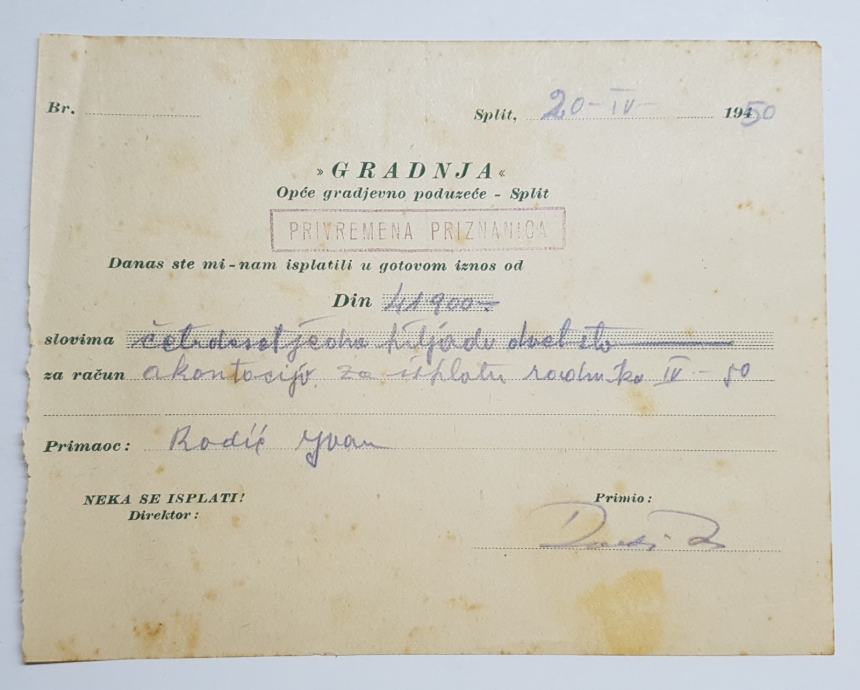 Br.
Split, 20-IV- 19450
»GRADNJA«
Opće gradjevno poduzeće - Split
PRIVREMENA PRIZNANICA
Danas ste mi-nam isplatili u gotovom iznos od
Din 41900-
slovima četrdeset jedna hiljadu devet sto
za račun akontacija za isplatu radnika IV - 50
Primaoc: Radić Ivan
NEKA SE ISPLATI!
Direktor:
Primio: